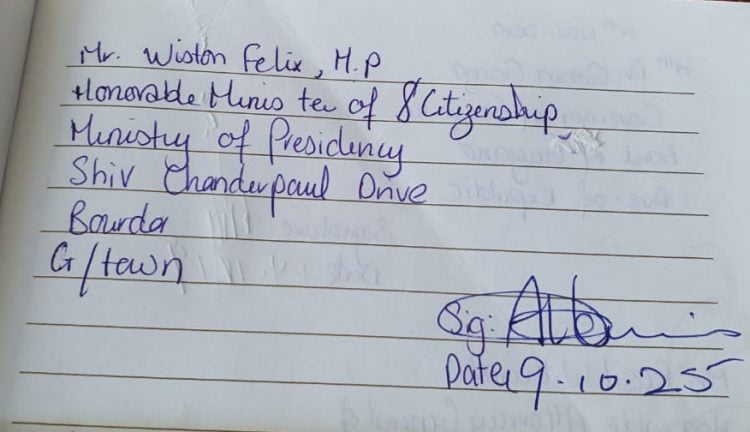 Mr. Wiston Felix, M.P
Honorable Minister of & Citizenship
Ministry of Presidency
Shiv Chanderpaul Drive
Bourda
G/town
Sig:
Date 19.10.25